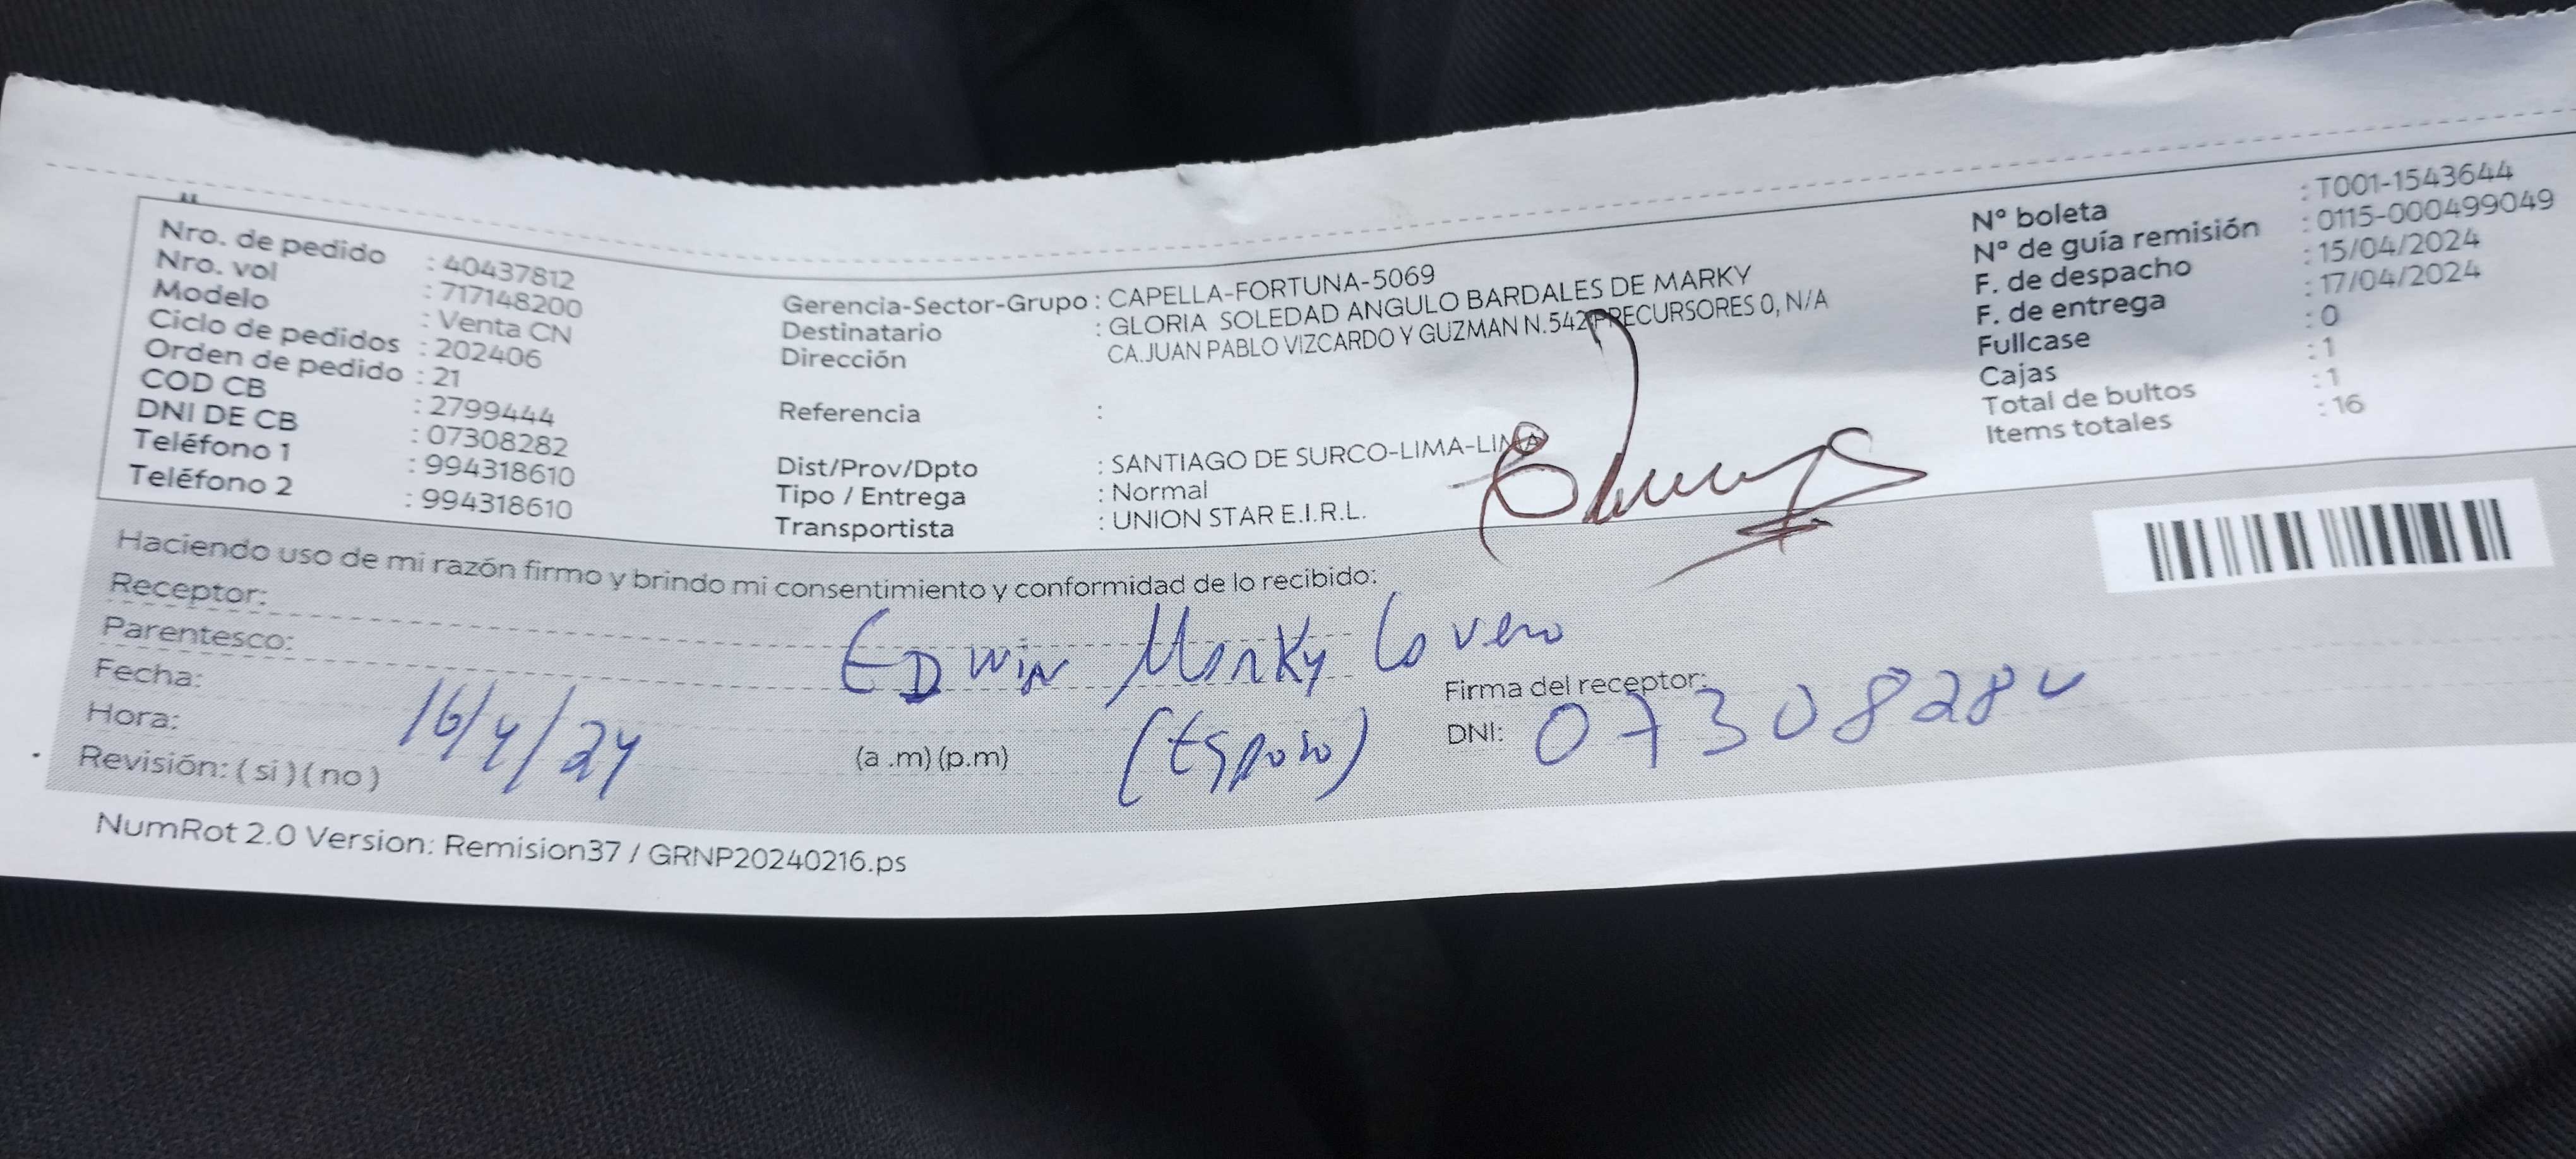 Nro. de pedido : 40437812
Nro. vol : 717148200
Modelo : Venta CN
Ciclo de pedidos : 202406
Orden de pedido : 21
COD CB : 2799444
DNI DE CB : 07308282
Teléfono 1 : 994318610
Teléfono 2 : 994318610
Gerencia-Sector-Grupo : CAPELLA-FORTUNA-5069
Destinatario : GLORIA SOLEDAD ANGULO BARDALES DE MARKY
Dirección CA.JUAN PABLO VIZCARDO Y GUZMAN N.542 PRECURSORES 0, N/A
Referencia :
Dist/Prov/Dpto : SANTIAGO DE SURCO-LIMA-LIMA
Tipo / Entrega : Normal
Transportista : UNION STAR E.I.R.L.
N° boleta : T001-1543644
N° de guía remisión : 0115-000499049
F. de despacho : 15/04/2024
F. de entrega : 17/04/2024
Fullcase : 0
Cajas : 1
Total de bultos : 1
Items totales : 16
Haciendo uso de mi razón firmo y brindo mi consentimiento y conformidad de lo recibido:
Receptor: Edwin Marky
Parentesco: (Esposo)
Fecha: 16/4/24
Hora: (a .m) (p.m)
Revisión: ( si ) ( no )
Firma del receptor:
DNI: 0730828
NumRot 2.0 Version: Remision37 / GRNP20240216.ps